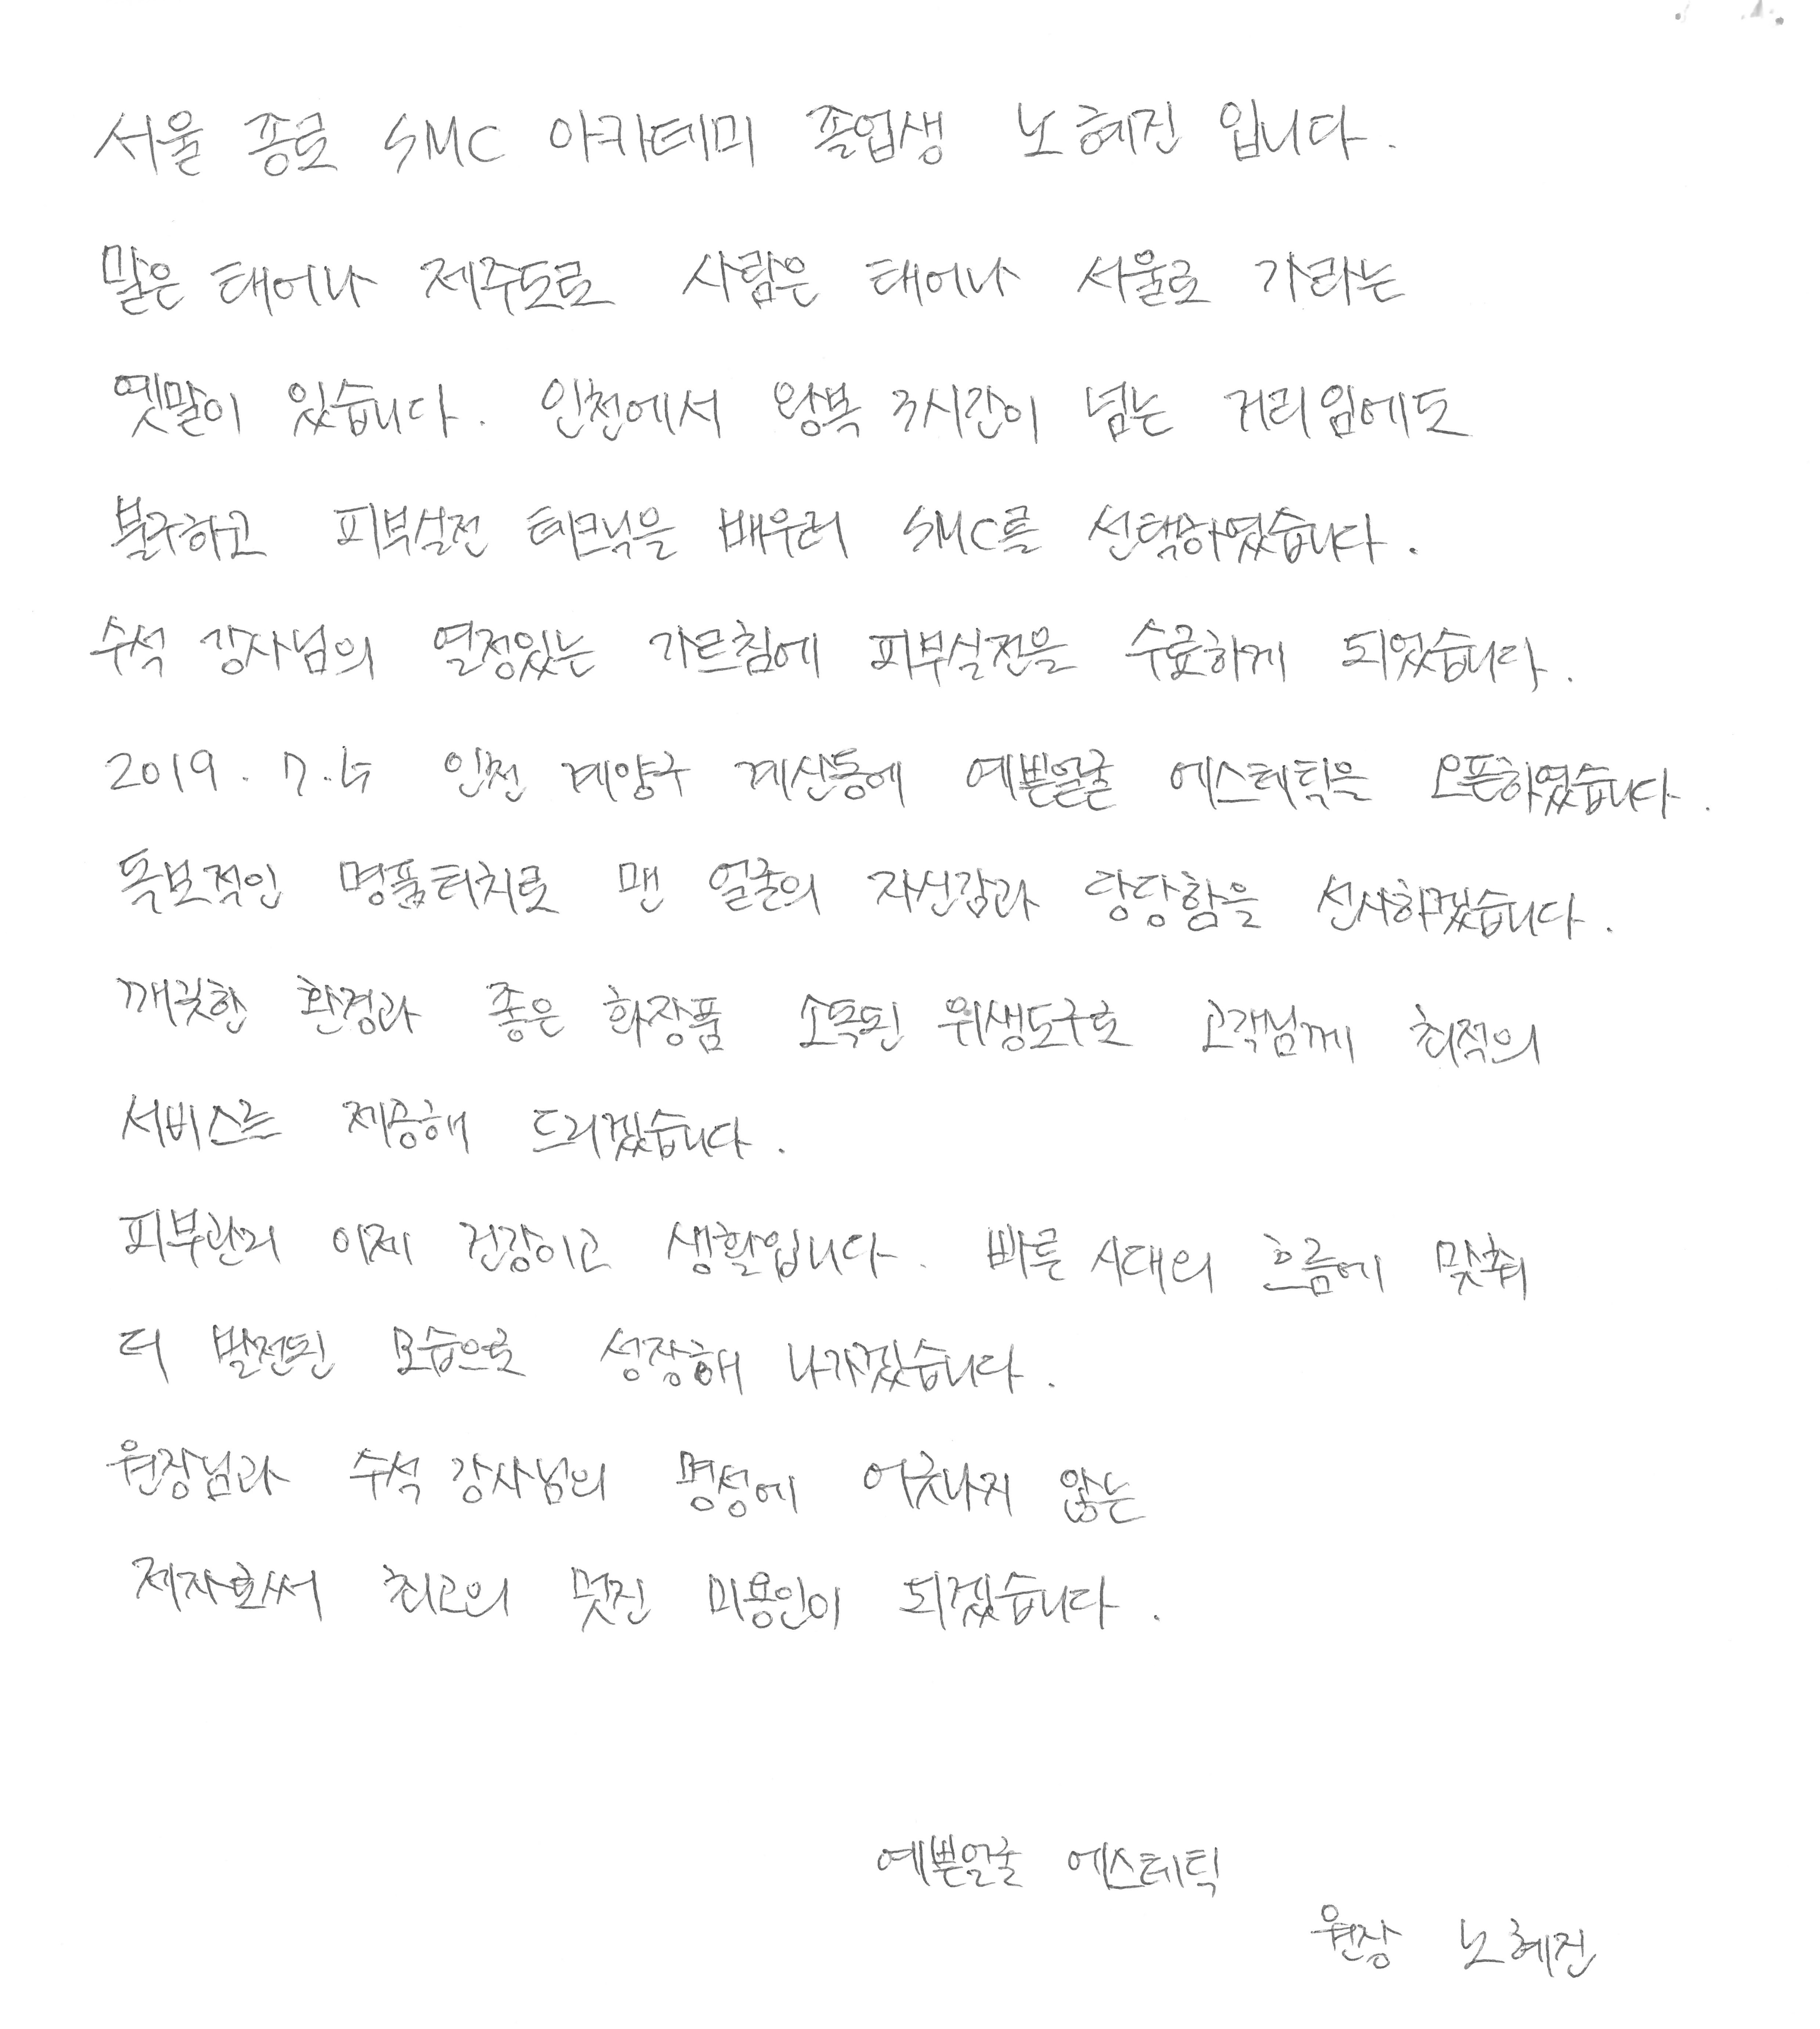 서울 종로 SMC 아카데미 졸업생 노혜진 입니다.
말은 태어나 제주도로 사람은 태어나 서울로 가라는
옛말이 있습니다. 인천에서 왕복 3시간이 넘는 거리임에도
불구하고 피부실전 테크닉을 배우러 SMC를 선택하였습니다.
수석 강사님의 열정있는 가르침에 피부실전을 수료하게 되었습니다.
2019. 7. 4 인천 계양구 계산동에 예쁜얼굴 에스테틱을 오픈하였습니다.
독보적인 명품터치로 맨 얼굴의 자신감과 당당함을 선사하겠습니다.
깨긋한 환경과 좋은 화장품 소독된 위생도구로 고객님께 최적의
서비스르 제공해 드리겠습니다.
피부관리 이제 건강이고 생활입니다. 빠른 시대의 흐름에 맞춰
더 발전된 모습으로 성장해 나가겠습니다.
원장님과 수석 강사님의 명성에 어긋나지 않는
제자로써 최고의 멋진 미용인이 되겠습니다.
예쁜얼굴 에스테틱
원장 노혜진